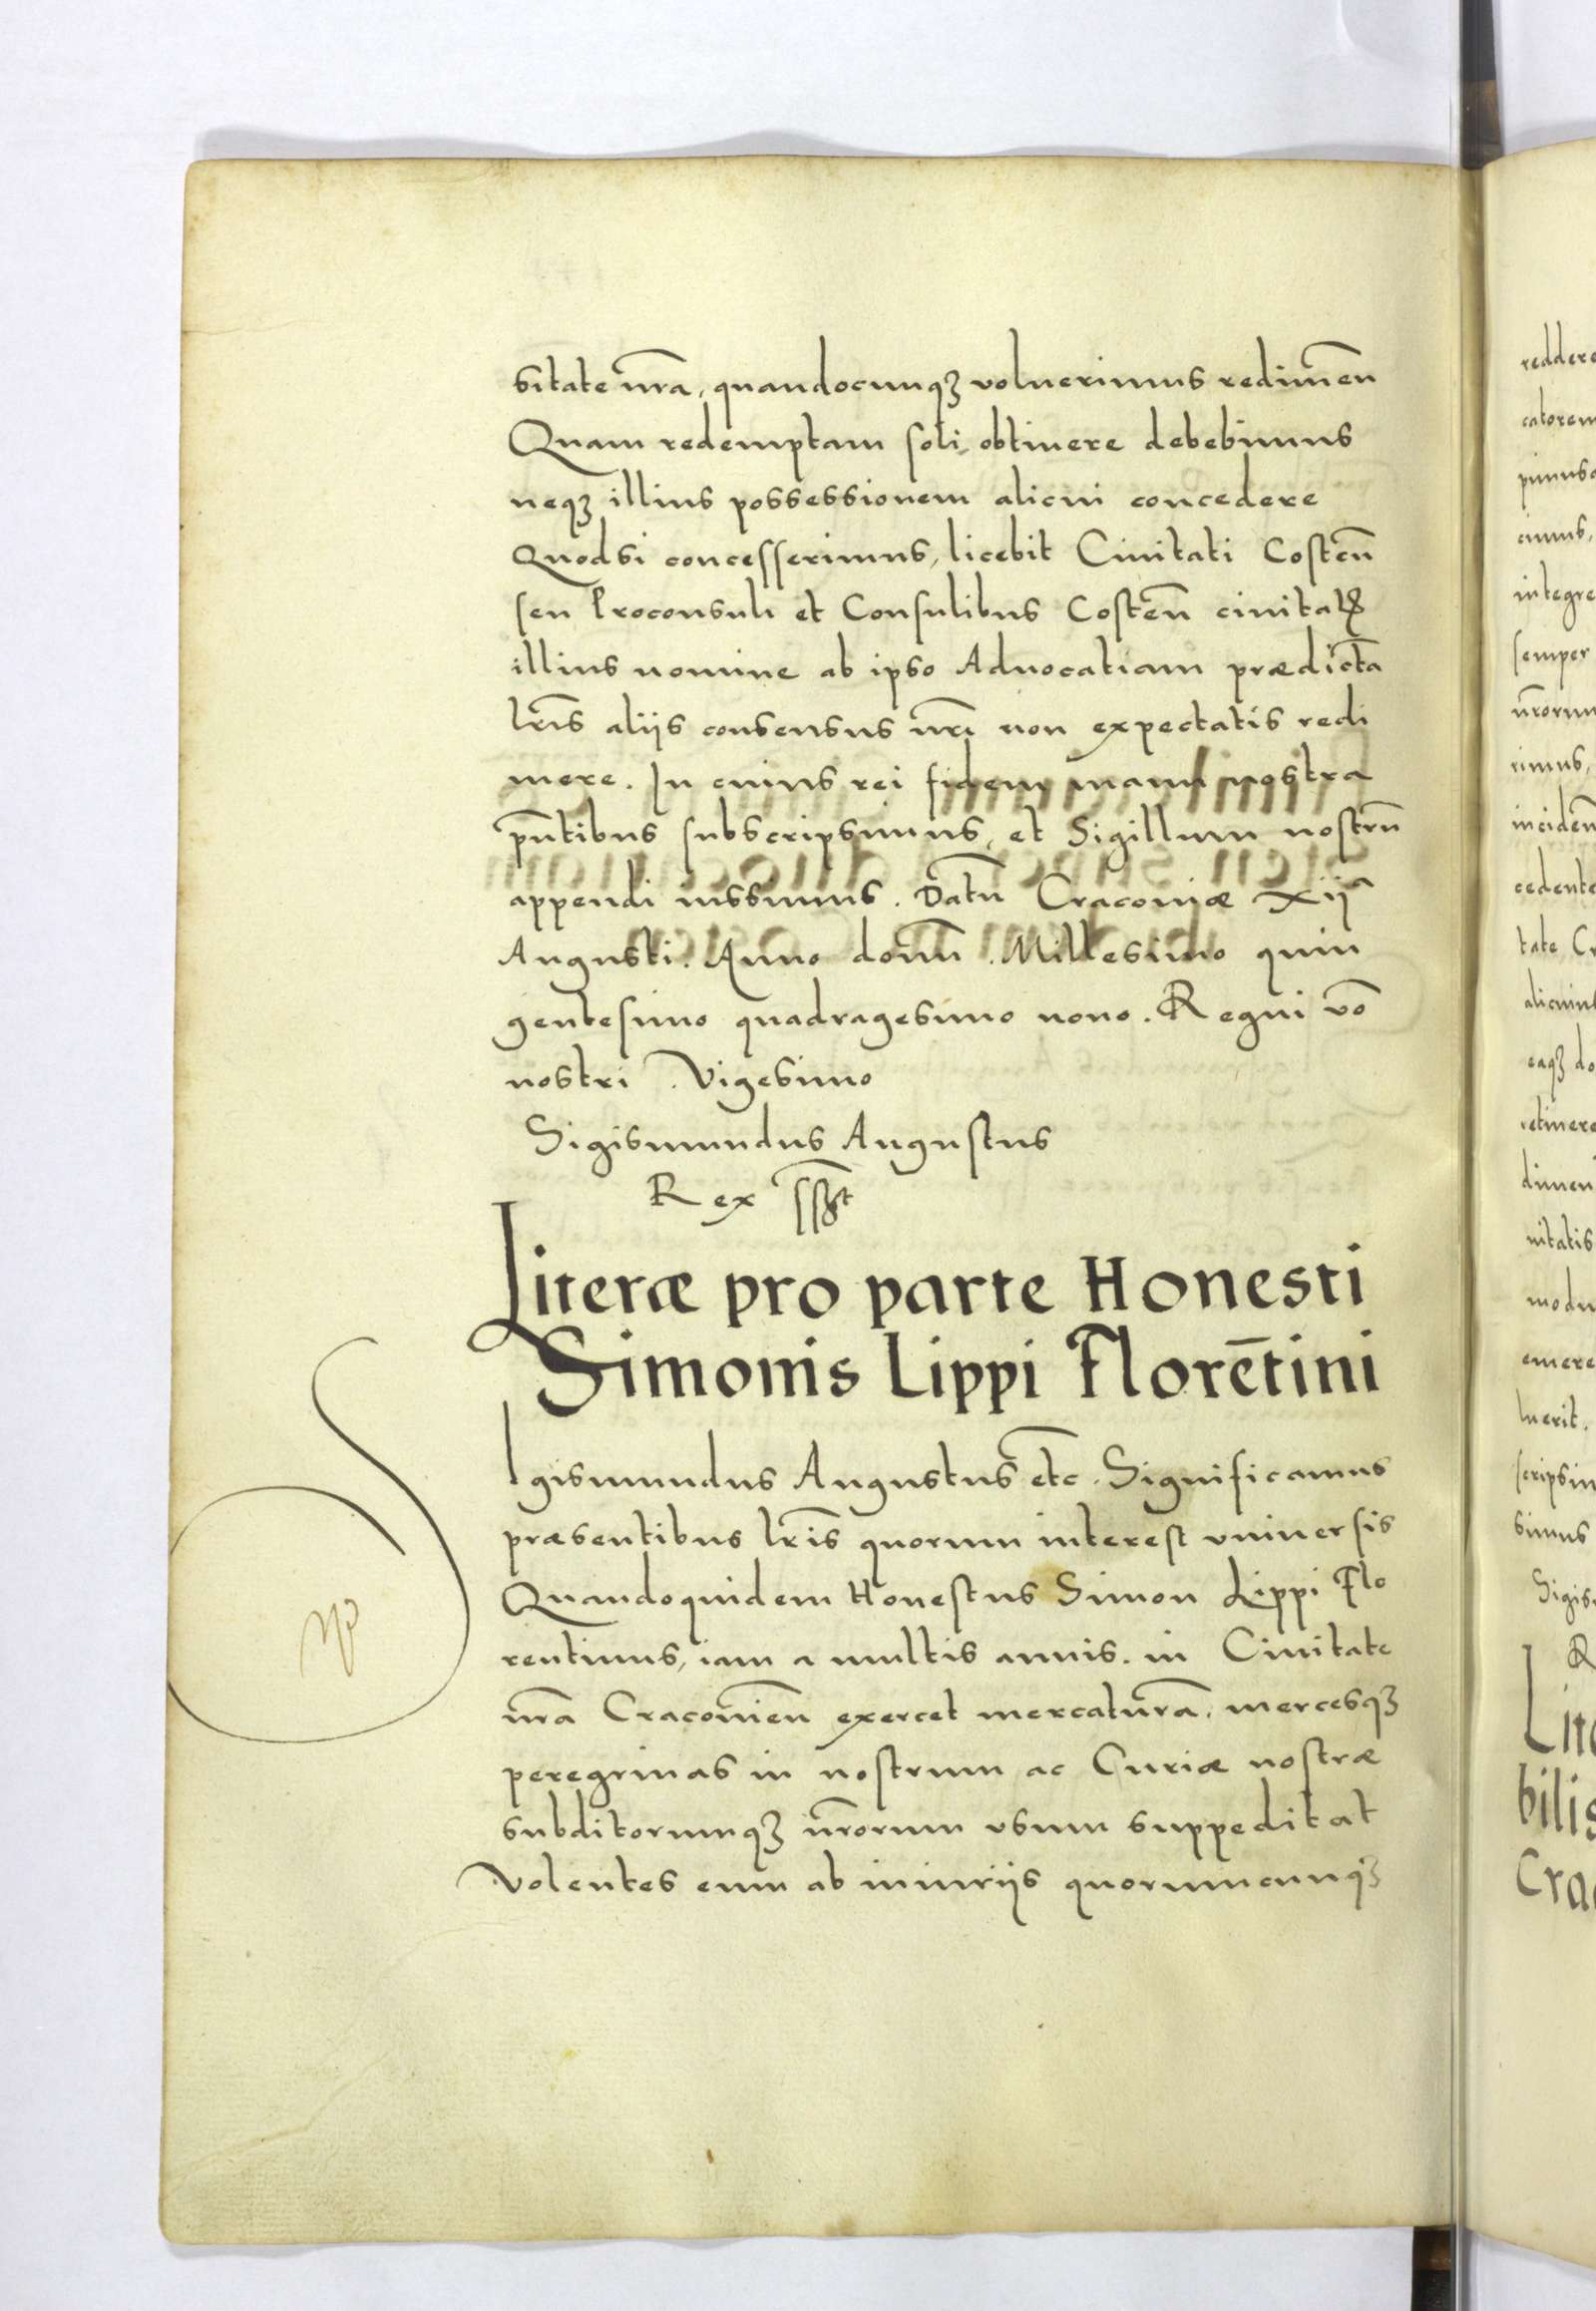 sitate nr̃a, quandocunqꝫ voluerimus redimen̄
Quam redemptam soli obtinere debebimus
neqꝫ illius possessionem alicui concedere
Quodsi concesserimus, licebit Ciuitati Costen̄
seu Proconsuli et Consulibus Costen̄ ciuitatꝭ
illius nomine ab ipso Aduocatiam prædictā
lr̃is aliis consensus nr̃i non expectatis redi
mere. In cuius rei fidem manu nostra
pñtibus subscripsimus, et Sigillum nostrū
appendi iussimus. Datū Cracouiæ xij ͣ
Augusti. Anno domī. Millesimo quin
gentesimo quadragesimo nono. Regni vō
nostri. Vigesimo
Sigismundus Augustus
Rex sszt
Literæ pro parte Honesti
Simonis Lippi Florētini
SIgismundus Augustus etc. Significamus
præsentibus lr̃is quorum interest vniuersis
Quandoquidem Honestus Simon Lippi Flo
rentinus, iam a multis annis. in Ciuitate
nr̃a Cracouien̄ exercet mercaturā, mercesqꝫ
peregrinas in nostrum ac Curiæ nostræ
subditorumqꝫ nr̃orum vsum suppeditat
Volentes eum ab iniuriis quorumcunqꝫ
reddere
catorem
cimus,
integre
semper
nr̃orum
rimus,
inciden̄
cedente
tate Cr
eaqꝫ do
etinere
dimen
uitatis
modu
emere
luerit.
scripsim
simus
Sigis
R
Lite
bilis
Cra